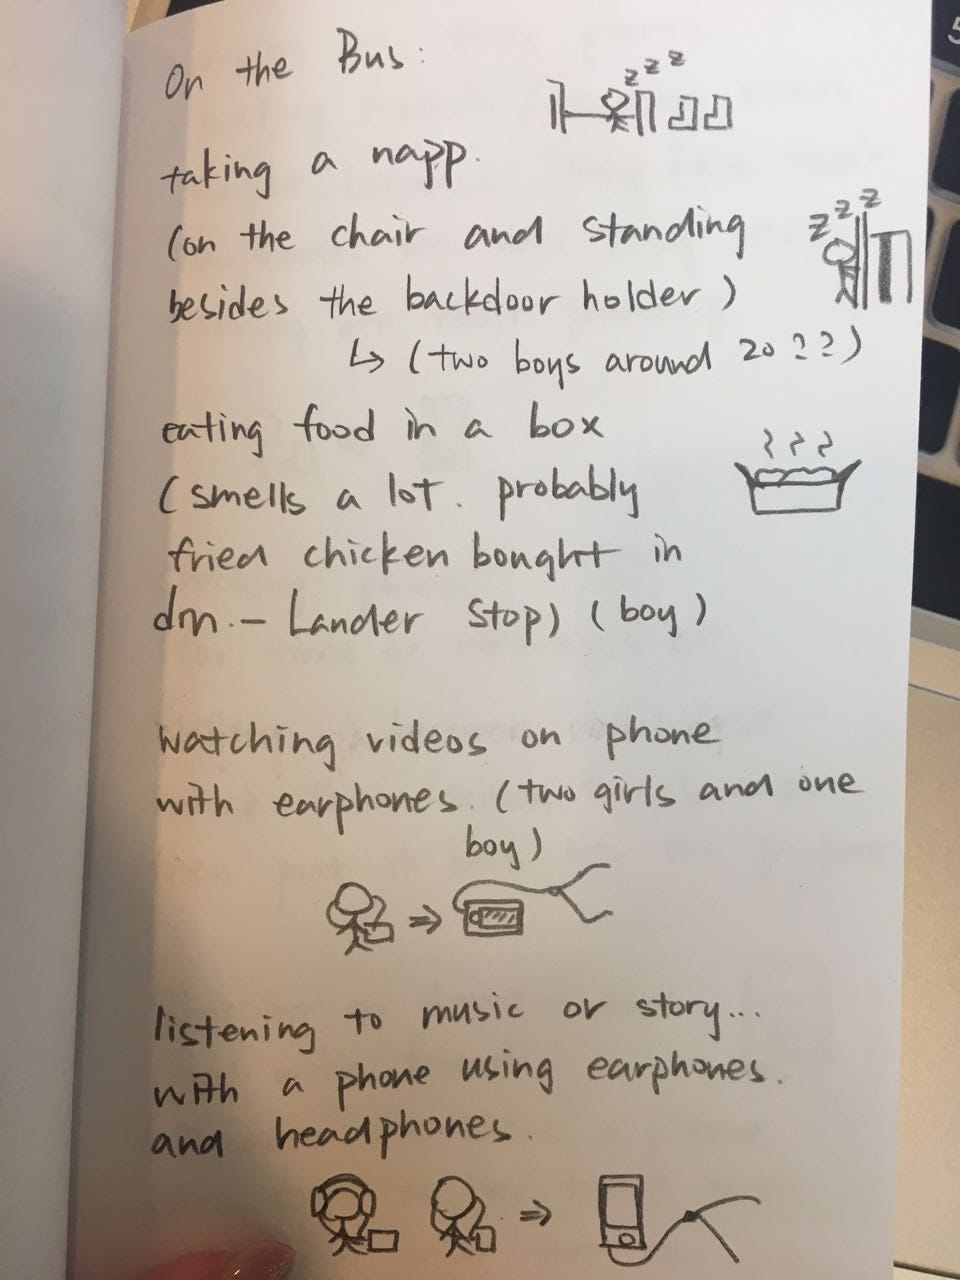 On the Bus:
z z z
taking a napp.
(on the chair and standing
z z z
besides the backdoor holder)
↳ (two boys around 20??)
eating food in a box
(smells a lot. probably
fried chicken bought in
dm.- Lander Stop) (boy)
watching videos on phone
with earphones. (two girls and one
boy)
⇒
listening to music or story...
with a phone using earphones.
and headphones.
⇒
5